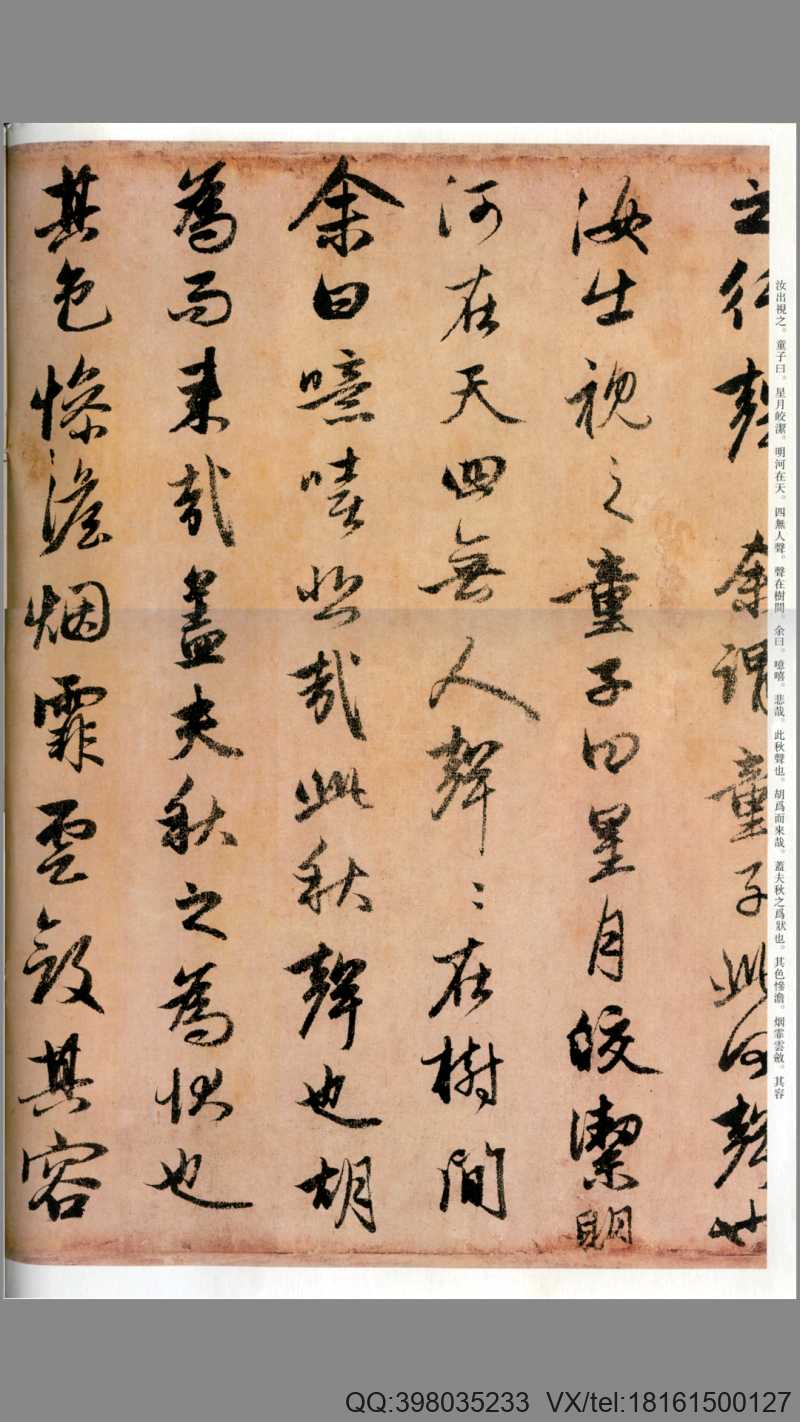 之行聲 余謂童子此何聲也
汝出視之童子曰星月皎潔明
河在天四無人聲〻在樹間
余曰噫嘻悲哉此秋聲也胡
為而來哉蓋夫秋之為狀也
其色慘澹烟霏雲斂其容
汝出視之。童子曰。星月皎潔。明河在天。四無人聲。聲在樹間。余曰。噫嘻。悲哉。此秋聲也。胡爲而來哉。蓋夫秋之爲狀也。其色慘澹。烟霏雲斂。其容
QQ:398035233 VX/tel:18161500127